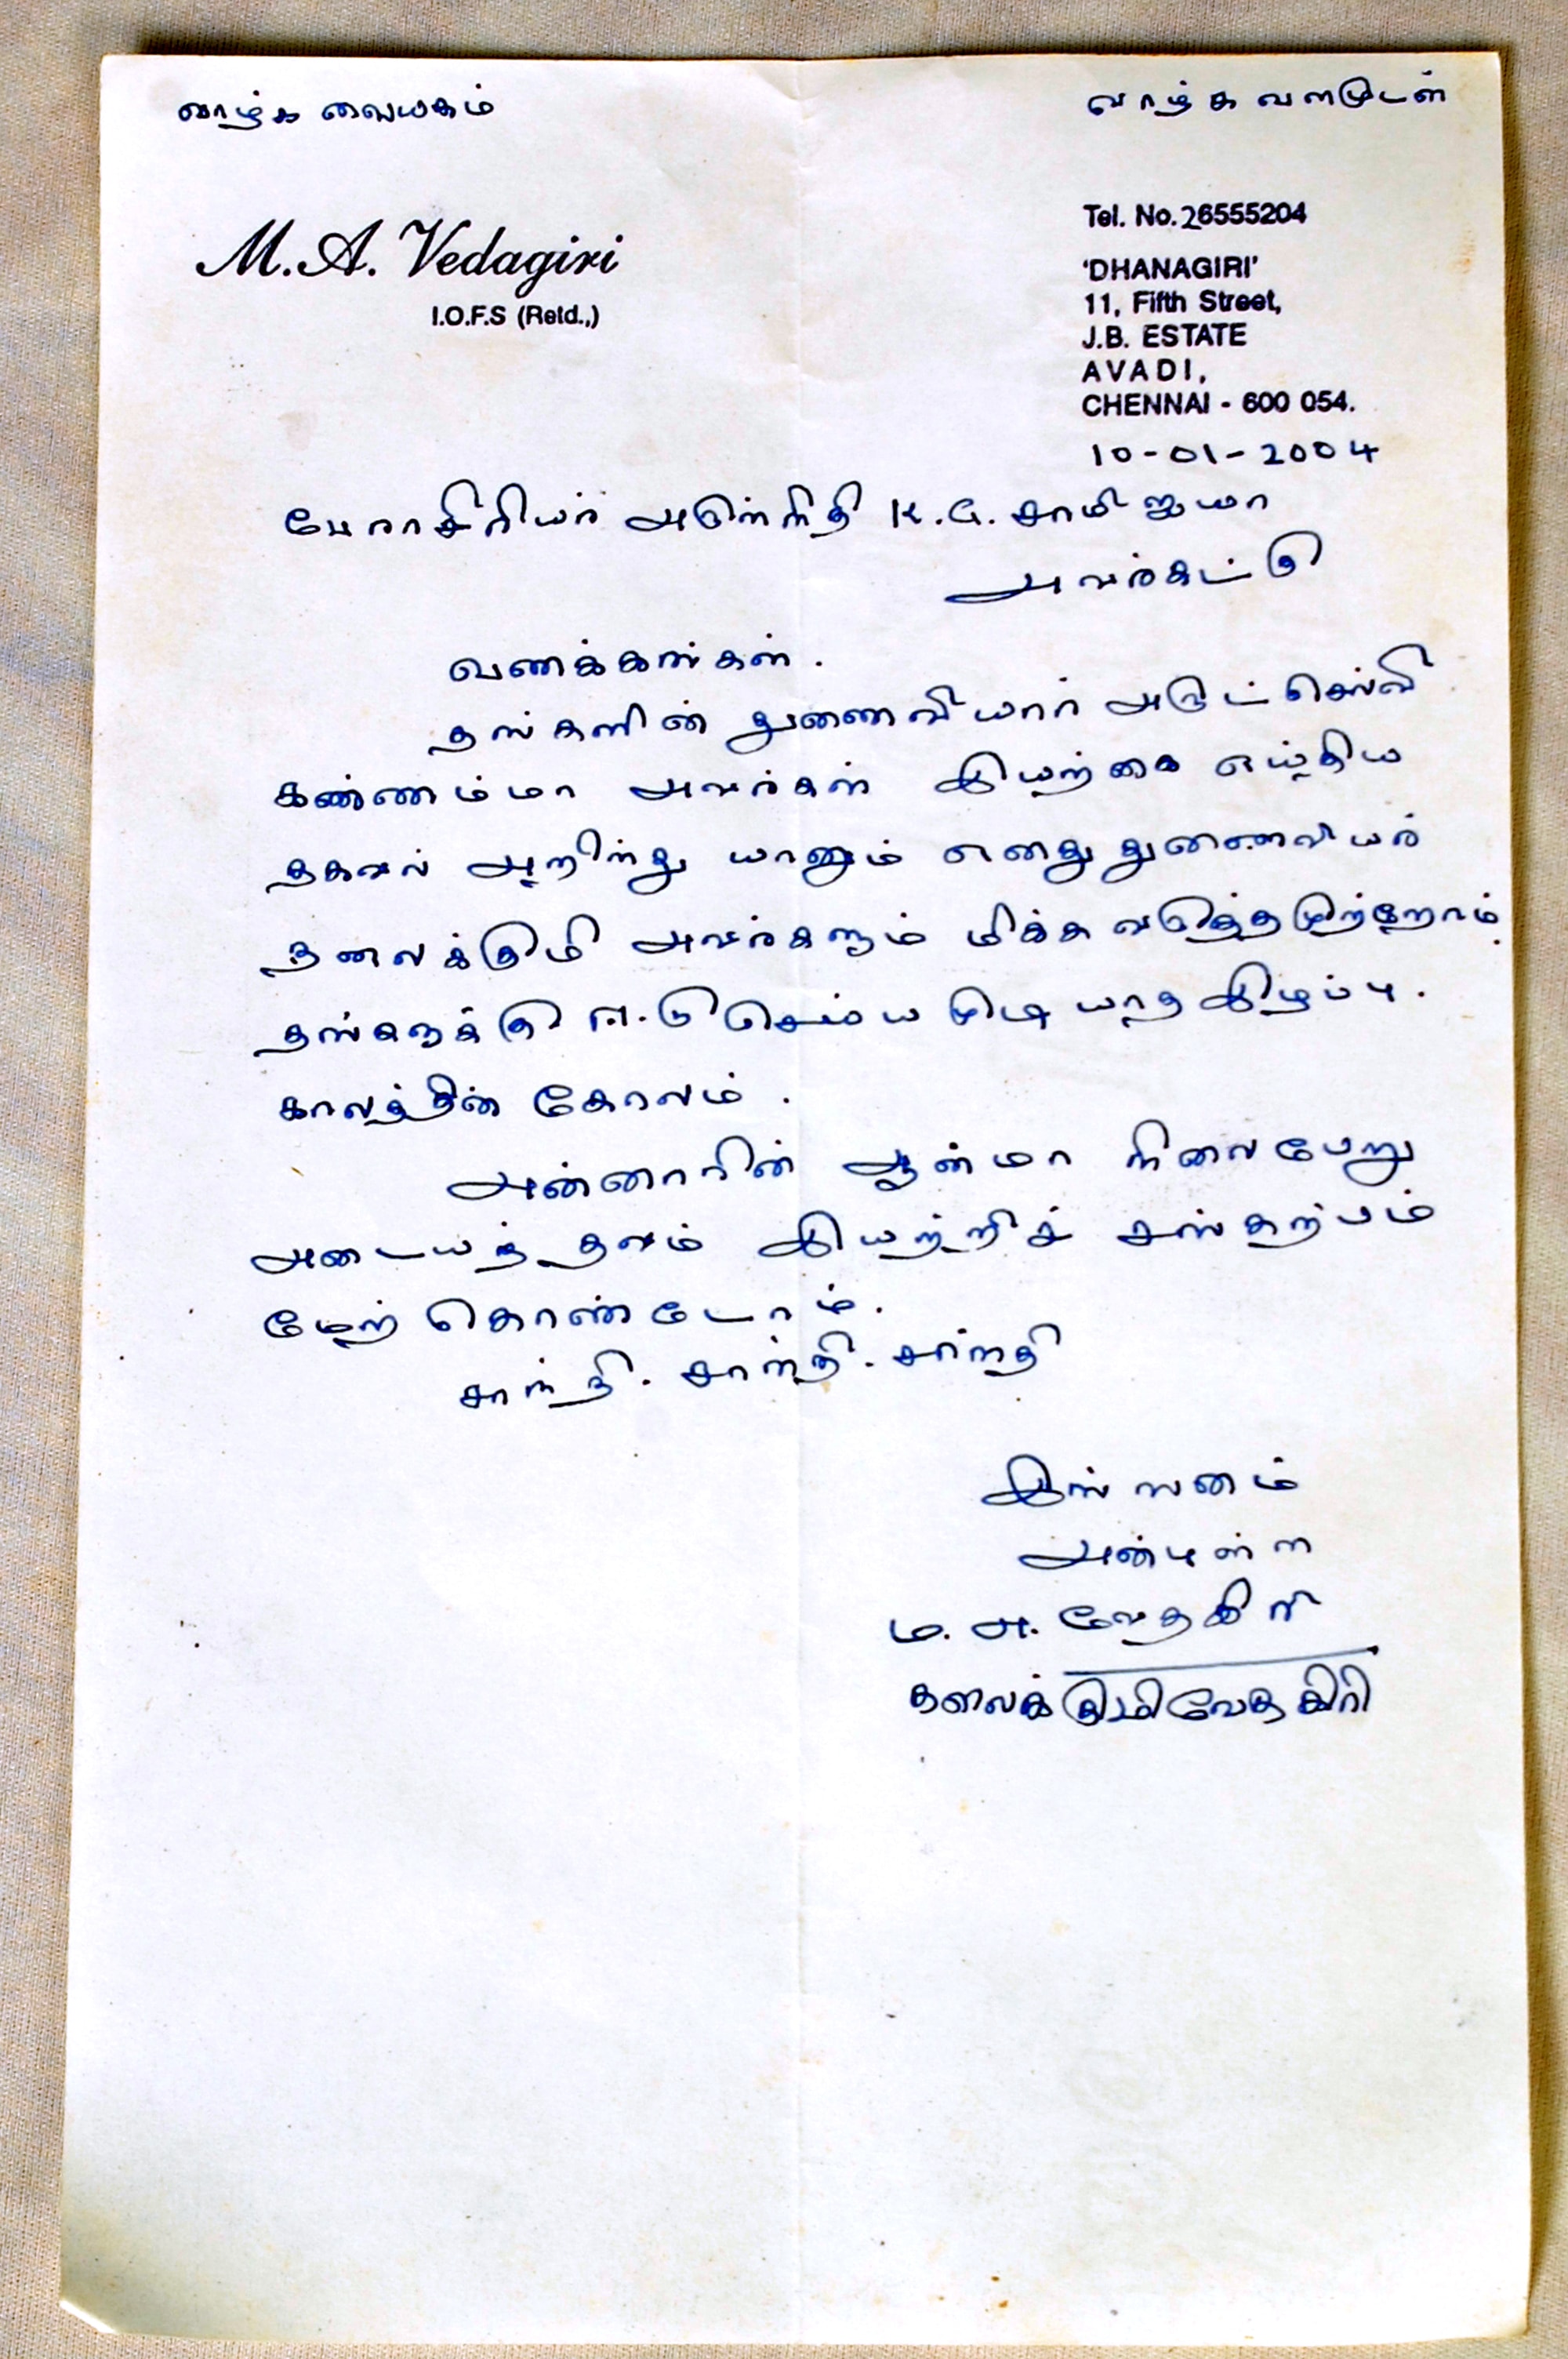 வாழ்க வையகம்
வாழ்க வளமுடன்
M.A. Vedagiri
I.O.F.S (Retd.,)
Tel. No. 26555204
'DHANAGIRI'
11, Fifth Street,
J.B. ESTATE
AVADI,
CHENNAI - 600 054.
10-01-2004
பேராசிரியர் அருள்நிதி K.G. சாமி ஐயா
அவர்கட்கு
வணக்கங்கள்.
தங்களின் துணைவியார் அருட்செல்வி
கண்ணம்மா அவர்கள் இயற்கை எய்திய
தகவல் அறிந்து யானும் எனது துணைவியர்
தலைக்குமி அவர்களும் மிக்க வருத்தமுற்றோம்.
தங்களுக்கு ஈடு செய்ய முடியாத இழப்பு.
காலத்தின் கோலம்.
அன்னாரின் ஆன்மா நிலைபேறு
அடையத் தவம் இயற்றிச் சங்கற்பம்
மேற் கொண்டோம்.
சாந்தி. சாந்தி. சாந்தி
இங்ஙனம்
அன்புள்ள
ம. அ. வேதகிரி
தலைக்குமி வேதகிரி